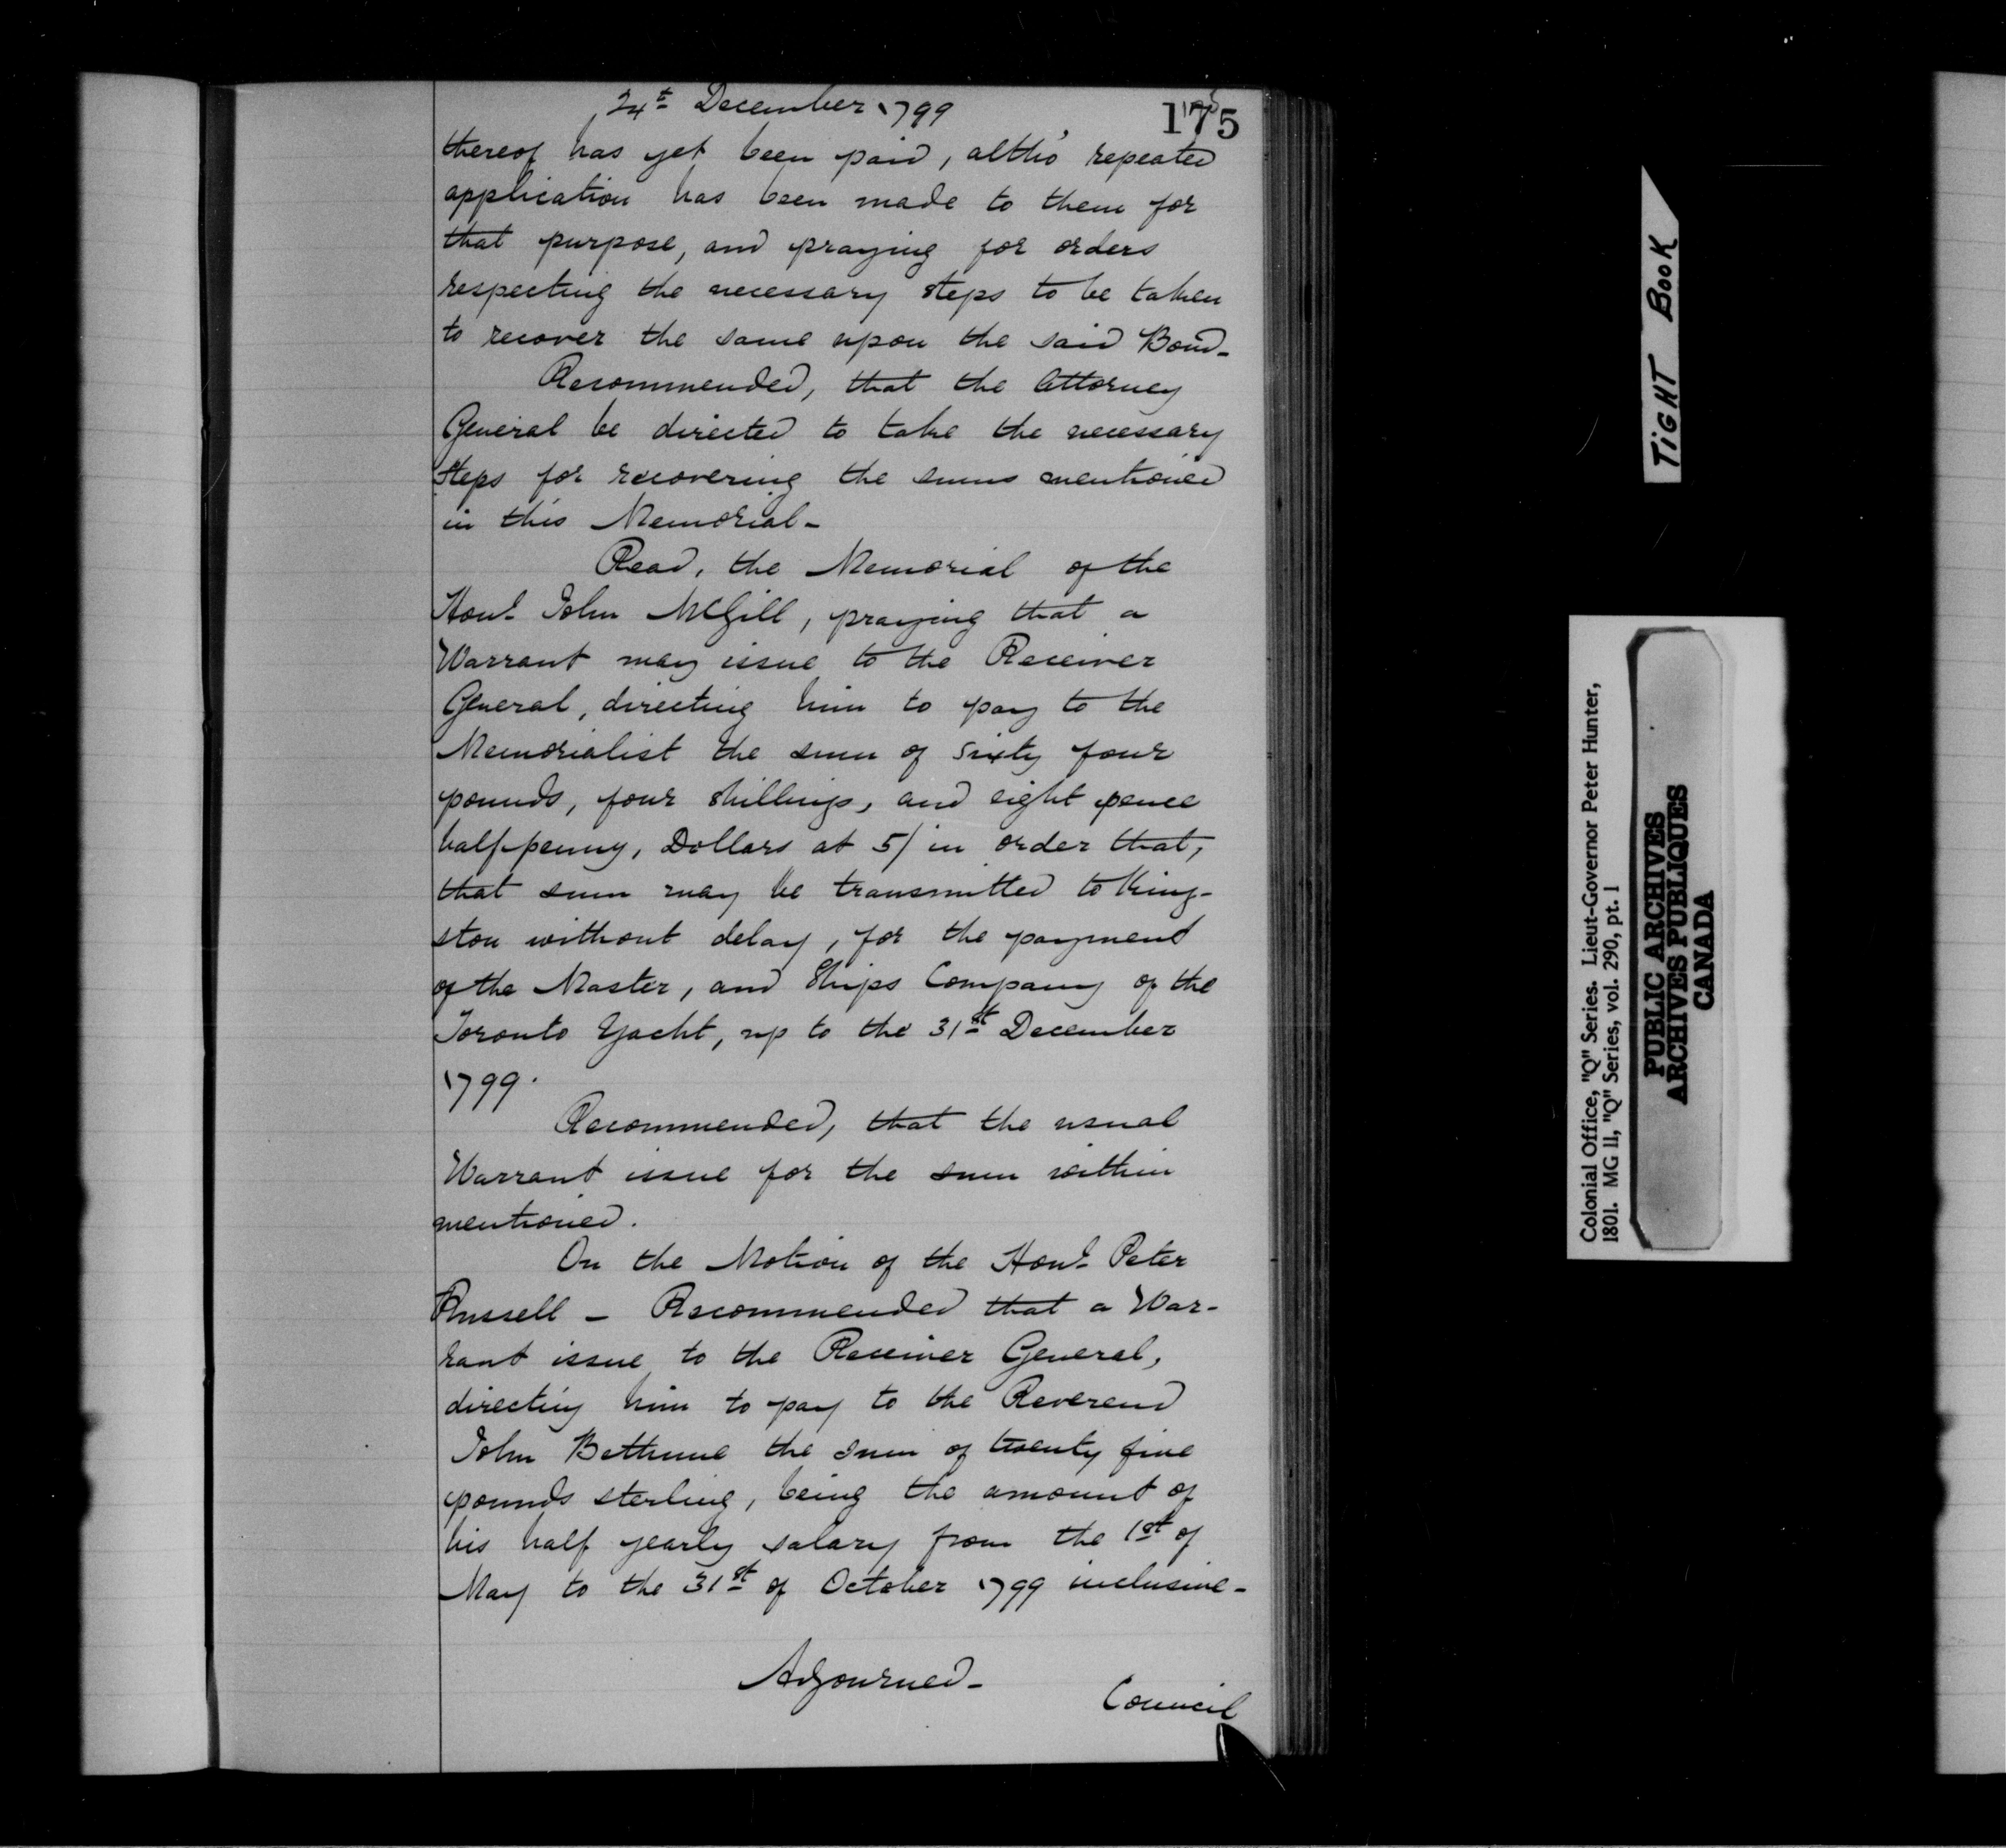 24th December 1799
175
thereof has yet been paid, altho' repeated
application has been made to them for
that purpose, and praying for orders
respecting the necessary steps to be taken
to recover the same upon the said Bond-
Recommended, that the Attorney
General be directed to take the necessary
steps for recovering the sums mentioned
in this Memorial-
Read, the Memorial of the
Honl John McGill, praying that a
Warrant may issue to the Receiver
General, directing him to pay to the
Memorialist the sum of Sixty four
pounds, four shillings, and eight pence
half-penny, Dollars at 5/ in order that,
that sum may be transmitted to King-
ston without delay, for the payment
of the Master, and Ships Company of the
Toronto Yacht, up to the 31st December
1799.
Recommended, that the usual
Warrant issue for the sum within
mentioned.
On the Motion of the Honl Peter
Russell - Recommended that a War-
rant issue to the Receiver General,
directing him to pay to the Reverend
John Bethune the sum of twenty five
pounds sterling, being the amount of
his half yearly salary from the 1st of
May to the 31st of October 1799 inclusive-
Adjourned-
Council
TIGHT BOOK
Colonial Office, "Q" Series. Lieut-Governor Peter Hunter,
1801. MG 11, "Q" Series, vol. 290, pt. 1
PUBLIC ARCHIVES
ARCHIVES PUBLIQUES
CANADA